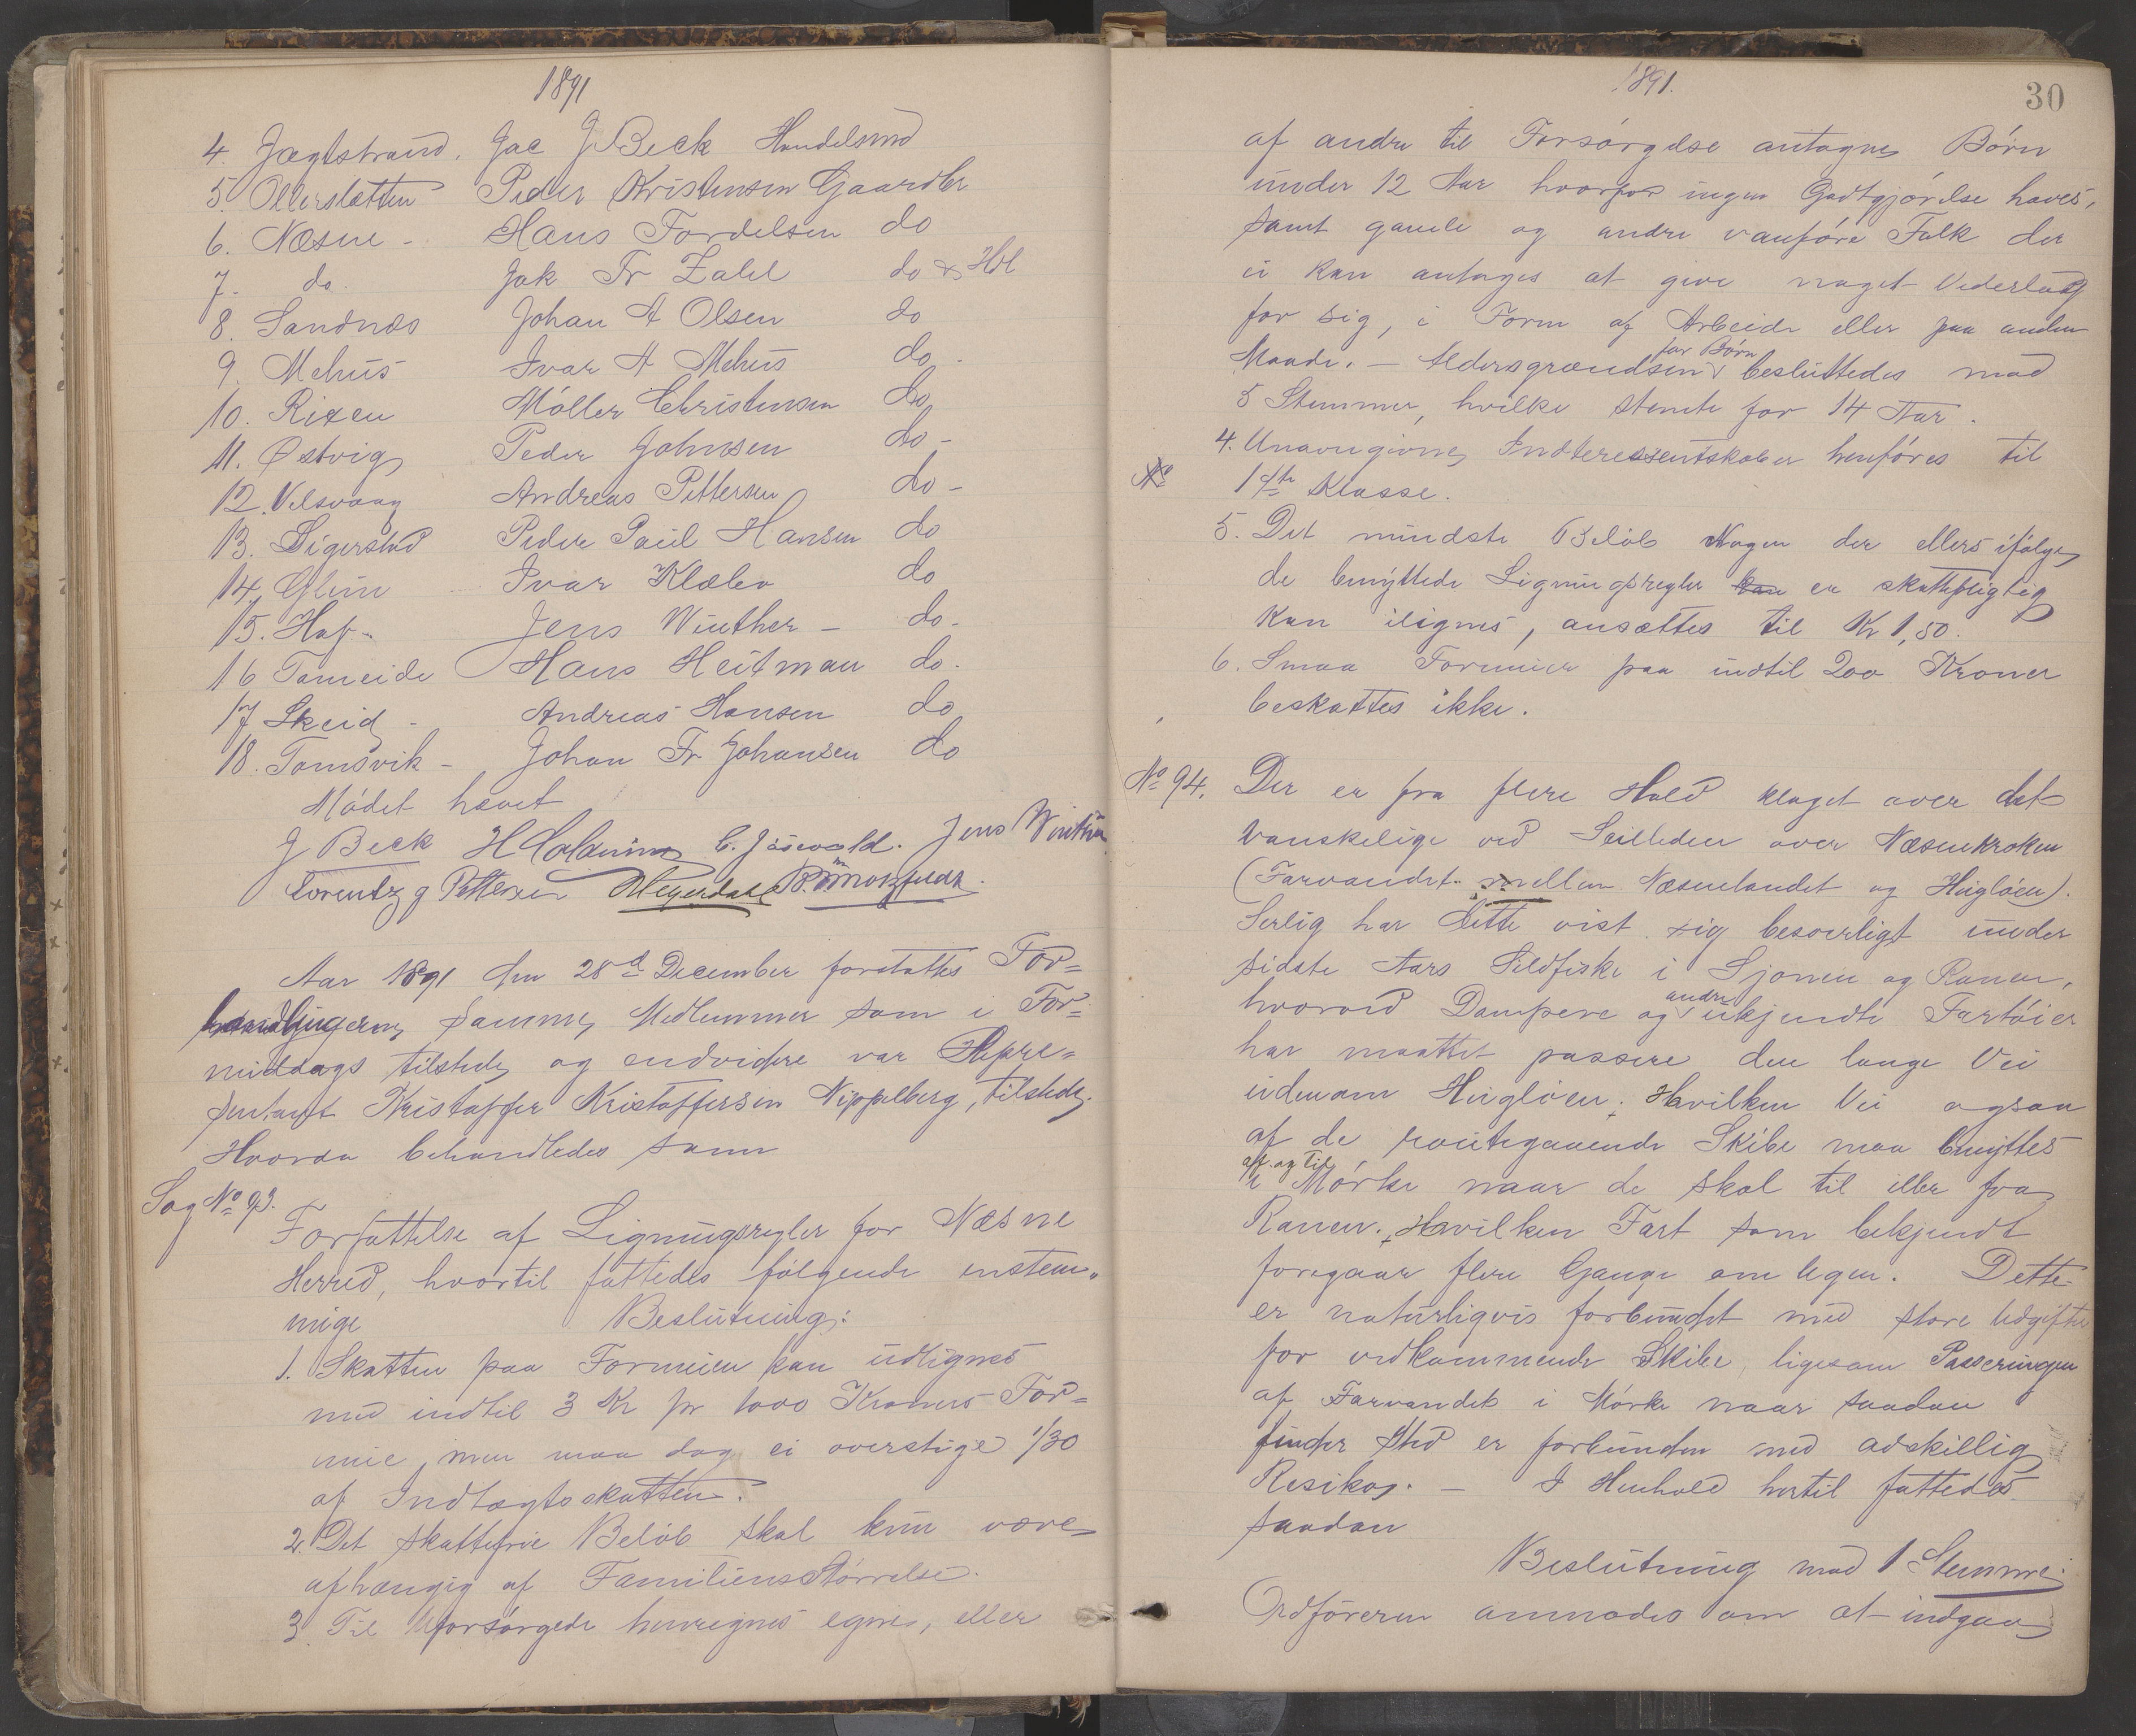 1891
4. Jægtstrand. Jac J Beck Handelsmd
5. Ollerslætten Peder Kristensen Gaardbr
6. Næsne - Hans Tordelsen do
7. do Jak Fr Zahl do & Hdl
8. Sandnæs Johan A Olsen do
9. Mehus Ivar A Mehus do -
10. Rixen Møller Christensen do
11. Østvig Peder Johnsen do -
12. Velsvaag Andreas Pettersen do -
13. Sigerstad Peder Paul Hansen do
14. Glein Ivar Klæbo do
15. Haf - Jens Winther - do -
16 Tømeide Hans Heitman do.
17 Skeid - Andreas Hansen do
18. Tomsvik - Johan Fr Johansen do
Mødet hævet
J Beck C. Jürwold. Jens Winther
Lorentz J Pettersen Meyerdahl
Aar 1891 den 28d December fortsattes For=
handlingerne, samme Medlemmer som i For=
middags tilstede, og endvidere var Repre=
sentant Kristoffer Kristoffersen Nippelberg, tilstede.
Hvorda behandledes som
Sag No 93.
Forfattelse af Ligningsregler for Næsne
Herred, hvortil fattedes følgende enstem„
mige Beslutning:
1. Skatten paa Formuen kan udlignes
med indtil 3 Kr pr 1000 Kroners For=
mue, men maa dog ei overstige 1/30
af Indtægtsskatten.
2. Det skattefrie Beløb skal kun være
afhængig af Familiens Størrelse.
3. Til Uforsørgede henregnes egne, eller
1891.
30
af andre til Forsørgelse antagne Børn
under 12 Aar hvorfor ingen Godtgjørelse haves,
samt gamle og andre vanføre Folk der
ei kan antages at give noget Vederlag
for sig, i Form af Arbeide eller paa anden
Maade. - Aldersgrændsen for Børn besluttedes mod
5 Stemmer, hvilke stemte for 14 Aar.
4. Unavngivne Indteressentskaber henføres til
No 1ste Klasse.
5. Det mindste Beløb Nogen der ellers ifølge
de benyttede Ligningsregler kan er skattepligtig
kan ilignes, ansættes til Kr 1,50.
6. Smaa Formuer paa indtil 200 Kroner
beskattes ikke.
No 94. Der er fra flere Hold klaget over det
vanskelige ved Seilleden over Næsnekroken
(Farvandet mellem Næsnelandet og Hugløen).
Serlig har dette vist sig besverligt under
sidste Aars Sildfiske i Sjonen og Ranen,
hvorved Dampere og andre ukjendte Fartøier
har maattet passere den lange Vei
udenom Hugløen. Hvilken Vei ogsaa
af de routegaaende Skibe maa benyttes
af og til
i Mørke naar de skal til eller fra
Ranen. Hvilken Fart som bekjendt
foregaar flere Gange om Ugen. Dette
er naturligvis forbundet med store Udgifter
for vedkommende Skibe, ligesom Passeringen
af Farvandet i Mørke naar saadan
finder Sted er forbunden med adskillig
Resiko. - I Henhold hertil fattedes
saadan
Beslutning mod 1 Stemme:
Ordføreren anmodes om at indgaa